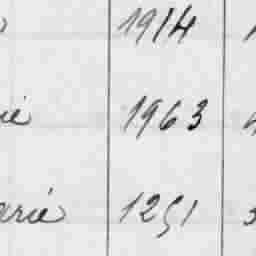 1914
ie 1963
arie 1251